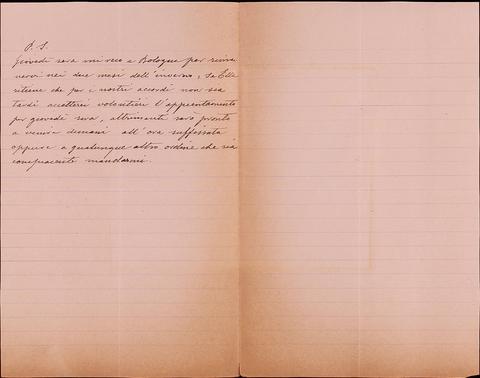 P. S.
Giovedì sera mi reco a Bologna per rima-
nervi nei due mesi dell'inverno; Se Ella
ritiene che per i nostri accordi non sia
tardi accetterei volentieri l'appuntamento
per giovedì sera, altrimenti sarò pronto
a venire domani all'ora suffissata
oppure a qualunque altro ordine che sia
compiacente mandarmi.